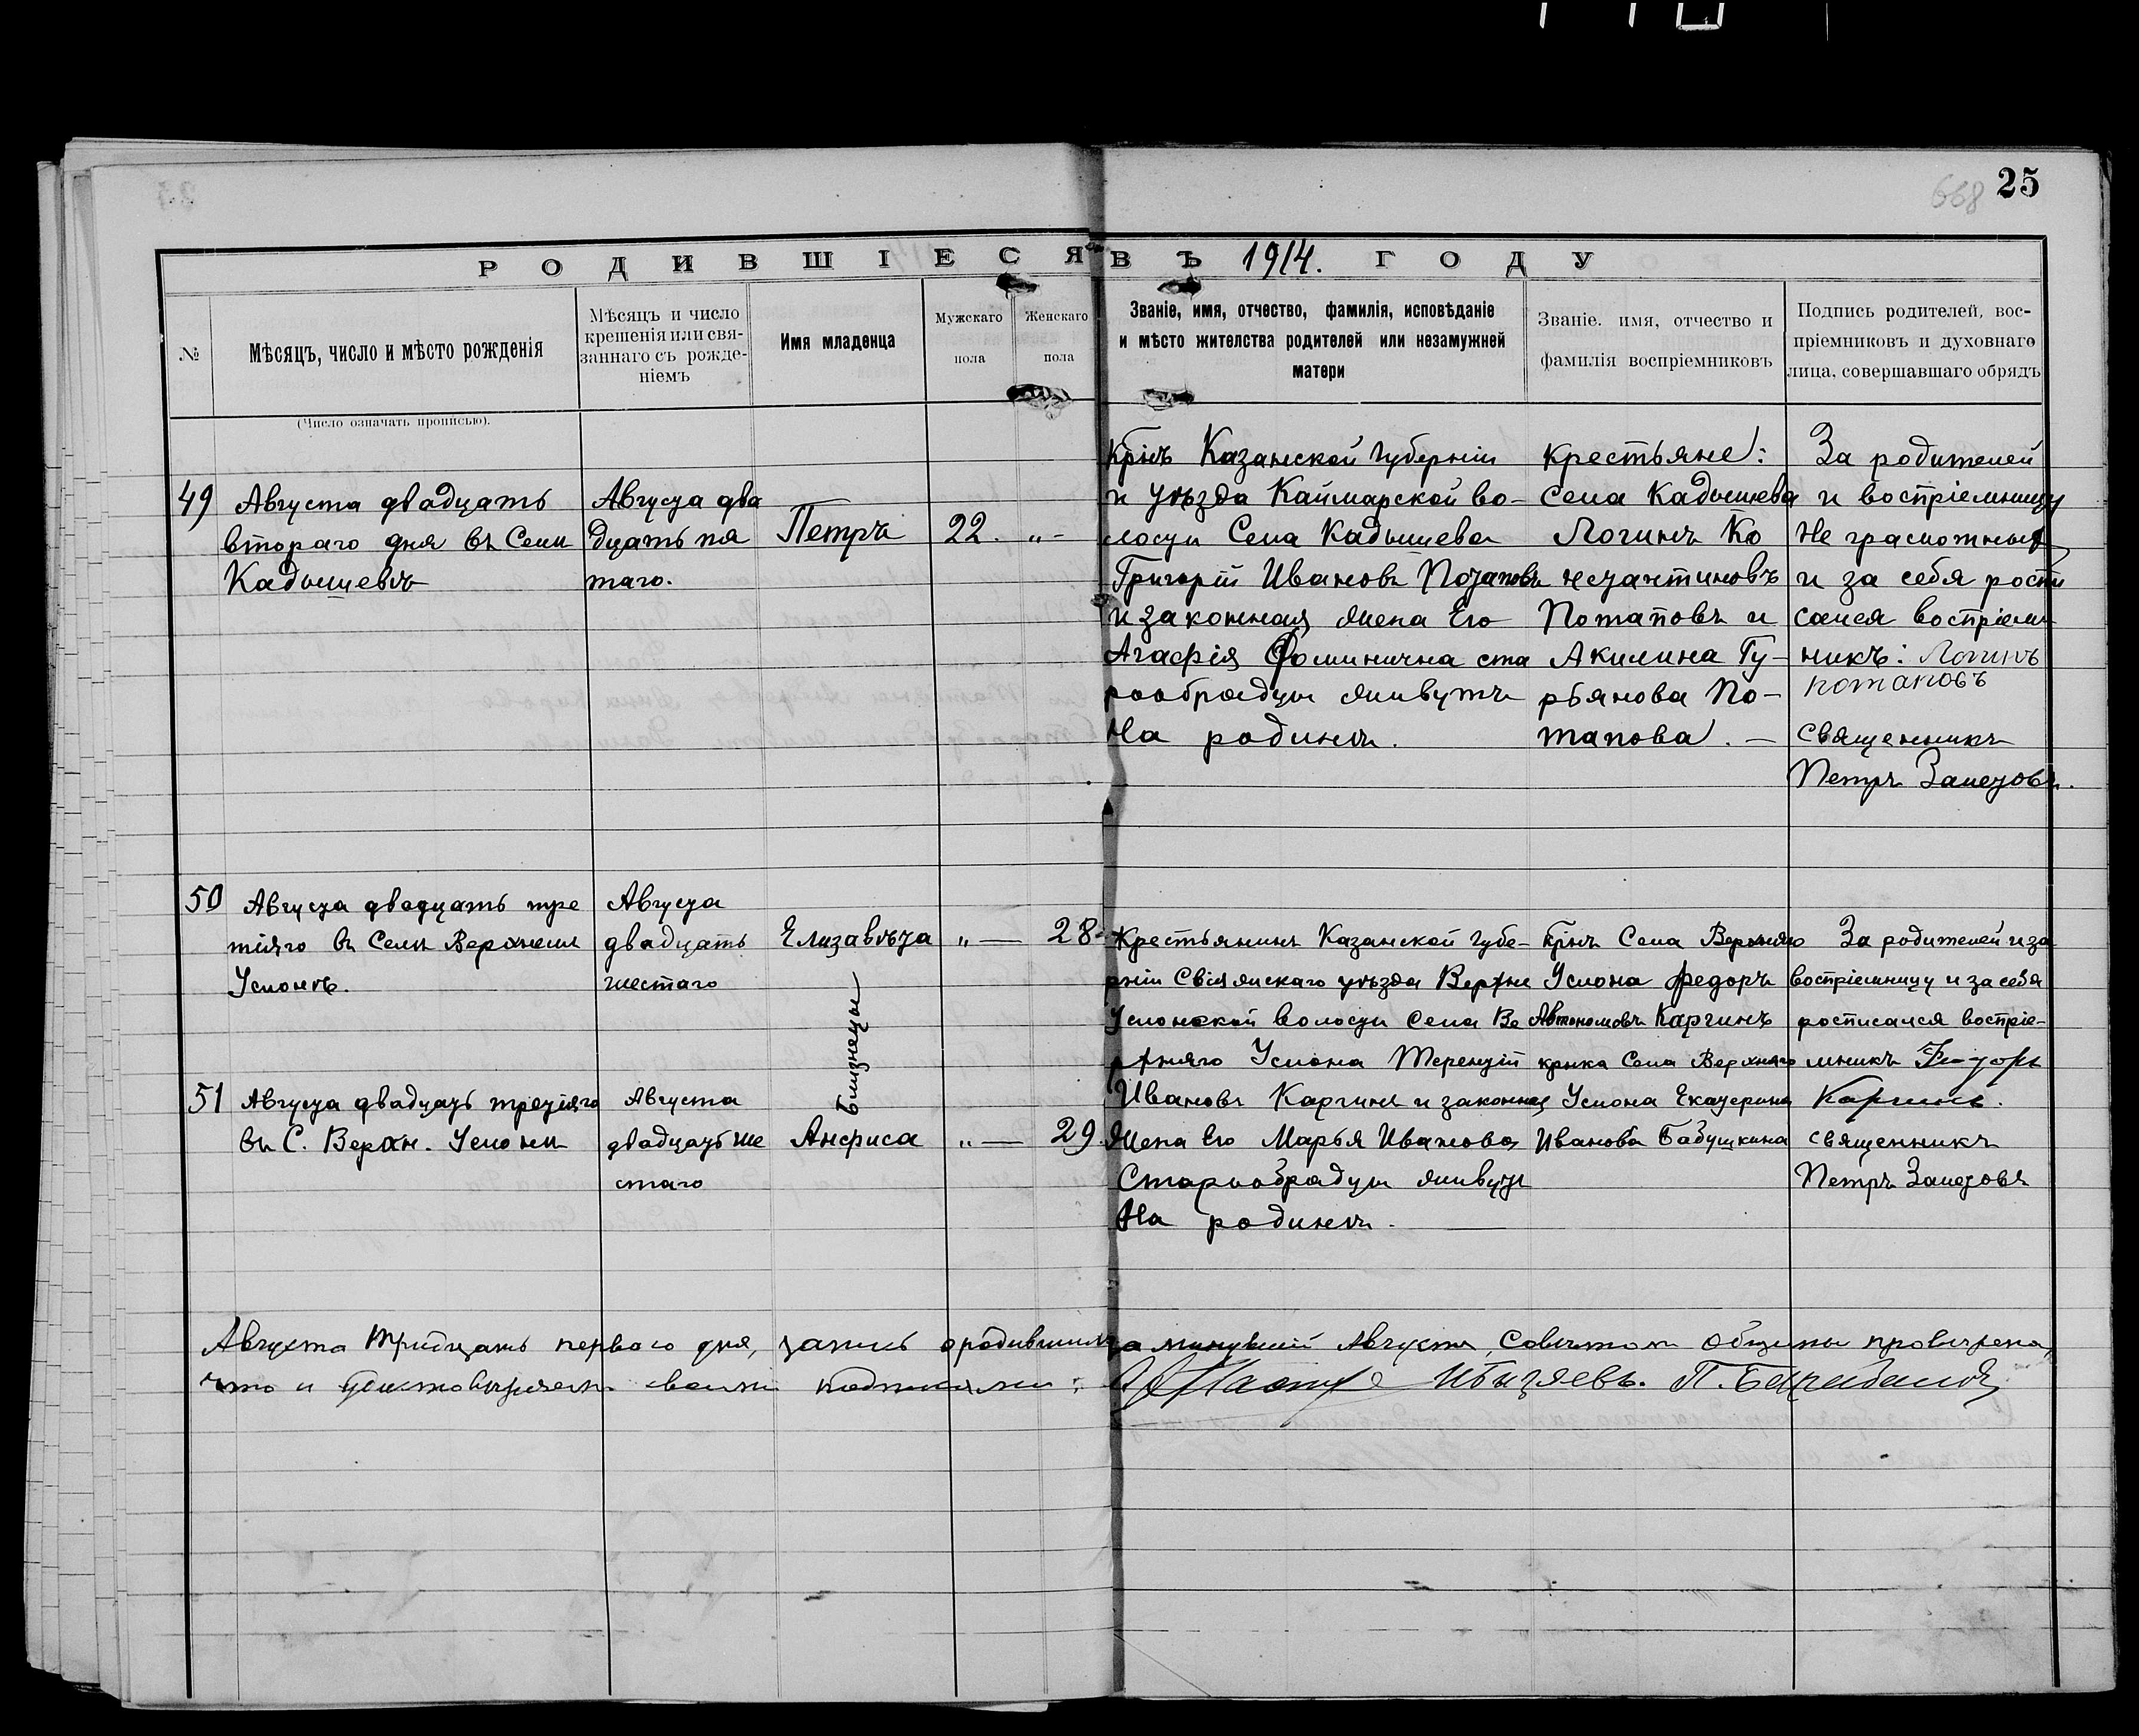 668 25
РОДИВШІЕСЯ ВЪ 1914. ГОДУ
№
Мѣсяцъ, число и мѣсто рожденія
(Число означать прописью).
Мѣсяцъ и число
крещенія или свя-
заннаго съ рожде-
ніемъ
Имя младенца
Мужскаго
пола
Женскаго
пола
Званіе, имя, отчество, фамилія, исповѣданіе
и мѣсто жителства родителей или незамужней
матери
Званіе. имя, отчество и
фамилія воспріемниковъ
Подпись родителей, вос-
пріемниковъ и духовнаго
лица, совершавшаго обрядъ
49
Августа двадцать
втораго дня въ Селѣ
Кадышевѣ
Августа два
дцать пя
таго.
Петръ
22.
„-
Крнъ Казанской губерніи
и уѣзда Каймарской во-
лости Села Кадышева
Григорій Ивановъ Потаповъ
и законная жена Его
Агафія Фоминична ста
рообрядцы живутъ
На родинѣ.
Крестьяне:
Села Кадышева
Логинъ Ко
нстантиновъ
Потаповъ и
Акилина Гу-
рьянова По-
тапова. —
За родителей
и воспріемницу
Не грамотных
и за себя роспи
сался воспріем
никъ: Логинъ
потаповъ
Священникъ
Петръ Залетовъ.
50
Августа двадцать тре
тіяго въ Селѣ Верхнемъ
Услонѣ.
Августа
двадцать
шестаго
Елизавѣта
„ —
28-
Близнецы
51
Августа двадцать третіяго
въ С. Верхн. Услонѣ
Августа
двадцать ше
стаго
Анфиса
„ —
29.
Крестьянинъ Казанской губе-
рніи Свіяжскаго уѣзда Верхне
Услонской волости Села Ве
рхняго Услона Терентій
Ивановъ Каргинъ и законная
Жена Его Марья Иванова
Старообрядцы живутъ
На родинѣ. —
Крнъ Села Верхняго
Услона Федоръ
Автономовъ Каргинъ
крнка Села Верхняго
Услона Екатерина
Иванова Бабушкина
За родителей и за
воспріемницу и за себя
росписался воспріе-
мникъ Федоръ
Каргинъ.
Священникъ
Петръ Залетовъ
Августа тридцать перваго дня, запись о родившихъ за минувшій Августъ, Совѣтомъ Общины провѣрена,
что и удостовѣряемъ своими подписями: